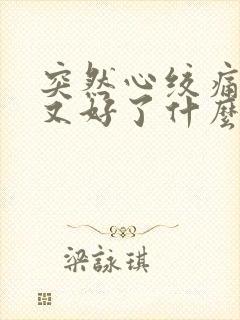 突然心绞痛
又好了什麼
梁詠琪